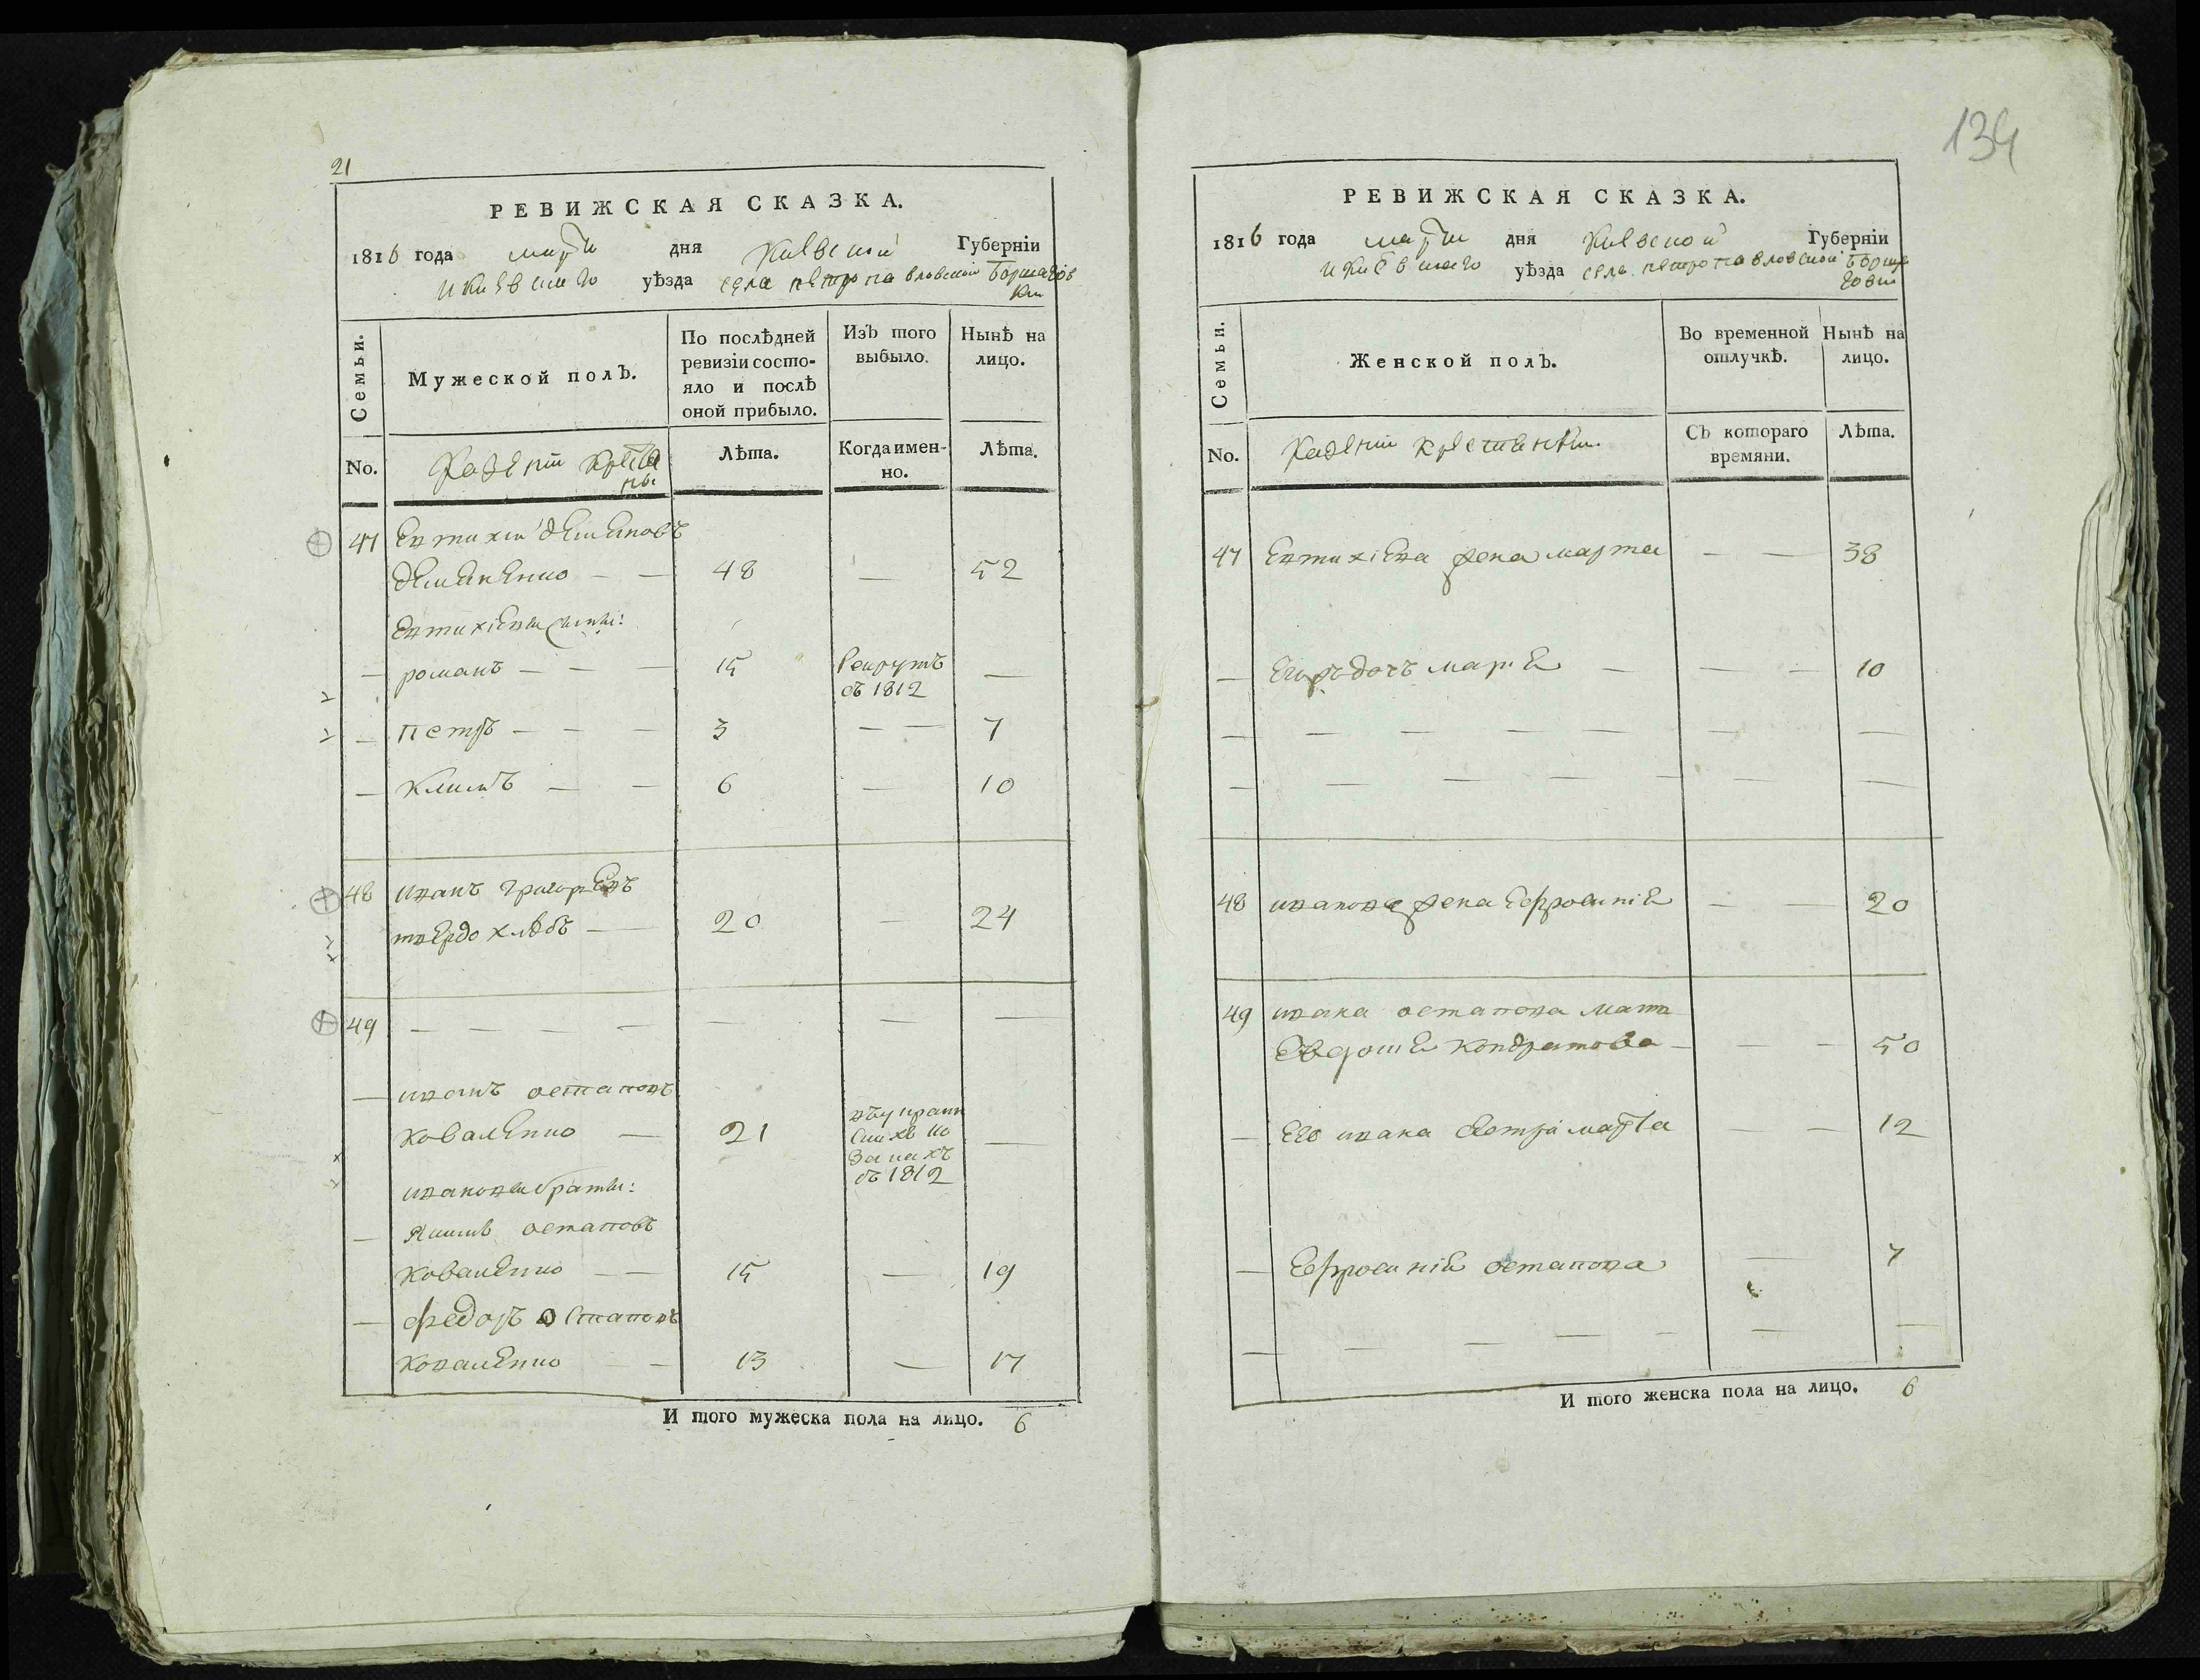 21
РЕВИЖСКАЯ СКАЗКА.
1816 года марта дня Киевской Губерніи
и Киевскаго уѣзда села петропавловской Борщагов
ки
Семьи.
Мужеской полъ.
По послѣдней
ревизіи состо-
яло и послѣ
оной прибыло.
Изъ того
выбыло.
Нынѣ на
лицо.
No.
Казеніи Крестья
ны
Лѣта.
Когда имен-
но.
Лѣта.
47 Евтихій демяновъ
демяненко — — 48 — 52
Евтихіевы сыны:
— романъ — — — 15 Рекрутъ —
въ 1812
— петръ — — — 3 — — 7
— климъ — — 6 — 10
48 иванъ григорьевъ
твердохлѣбъ — — 20 — 24
49 — — — — — —
— иванъ остаповъ
коваленко — 21 —
козакахъ
въ 1812
ивановы братьи:
— Якимъ остаповъ
коваленко — — 15 — 19
— федоръ остаповъ
коваленко — — 13 — 17
И того мужеска пола на лицо. 6
134
РЕВИЖСКАЯ СКАЗКА.
1816 года марта дня Киевской Губерніи
и Киевскаго уѣзда села петропавловской Борща
говки
Семьи.
Женской полъ.
Во временной
отлучкѣ.
Нынѣ на
лицо.
No.
Казеніи крестьянки
Съ котораго
времяни.
Лѣта.
47 Евтихіева жена марта — — 38
— Егожъ дочъ марія — — — 10
— — — — — — —
— — — — — — —
48 иванова жена Ефросинія — — 20
49 ивана остапова мать
Евдокія кондратова — — — 50
— Его ивана сестра марта — — 12
— Ефросинія остапова — 7
— — — — — — —
И того женска пола на лицо. 6